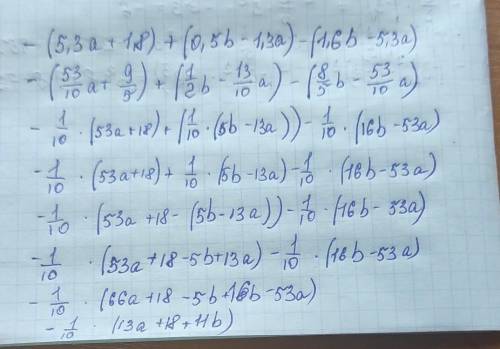 - (5,3a + 1,8) + (0,5b - 1,3a) - (1,6b - 5,3a)
- (53/10 a + 9/5) + (1/2 b - 13/10 a) - (8/5 b - 53/10 a)
- 1/10 · (53a + 18) + (1/10 · (5b - 13a)) - 1/10 · (16b - 53a)
- 1/10 · (53a + 18) + 1/10 · (5b - 13a) - 1/10 · (16b - 53a)
- 1/10 · (53a + 18 - (5b - 13a)) - 1/10 · (16b - 53a)
- 1/10 · (53a + 18 - 5b + 13a) - 1/10 · (16b - 53a)
- 1/10 · (66a + 18 - 5b + 16b - 53a)
- 1/10 · (13a + 18 + 11b)